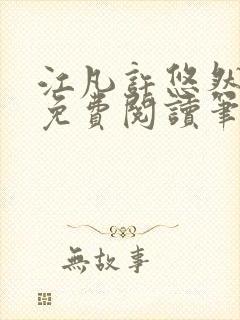 江凡許悠然
免費閱讀筆
無故事